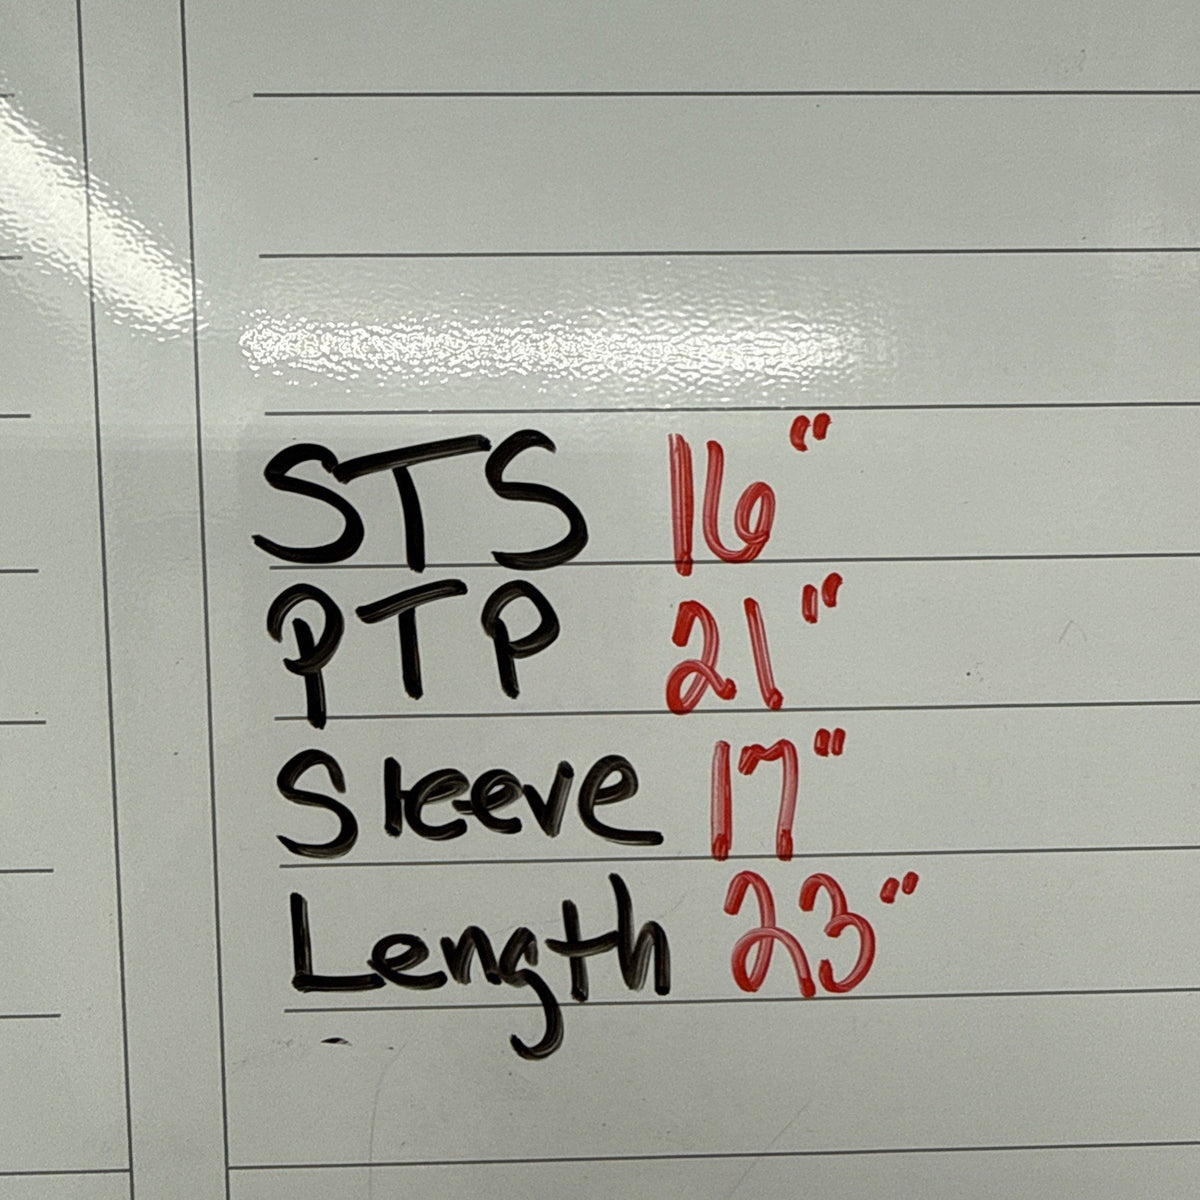 STS 16"
PTP 21"
Sleeve 17"
Length 23"